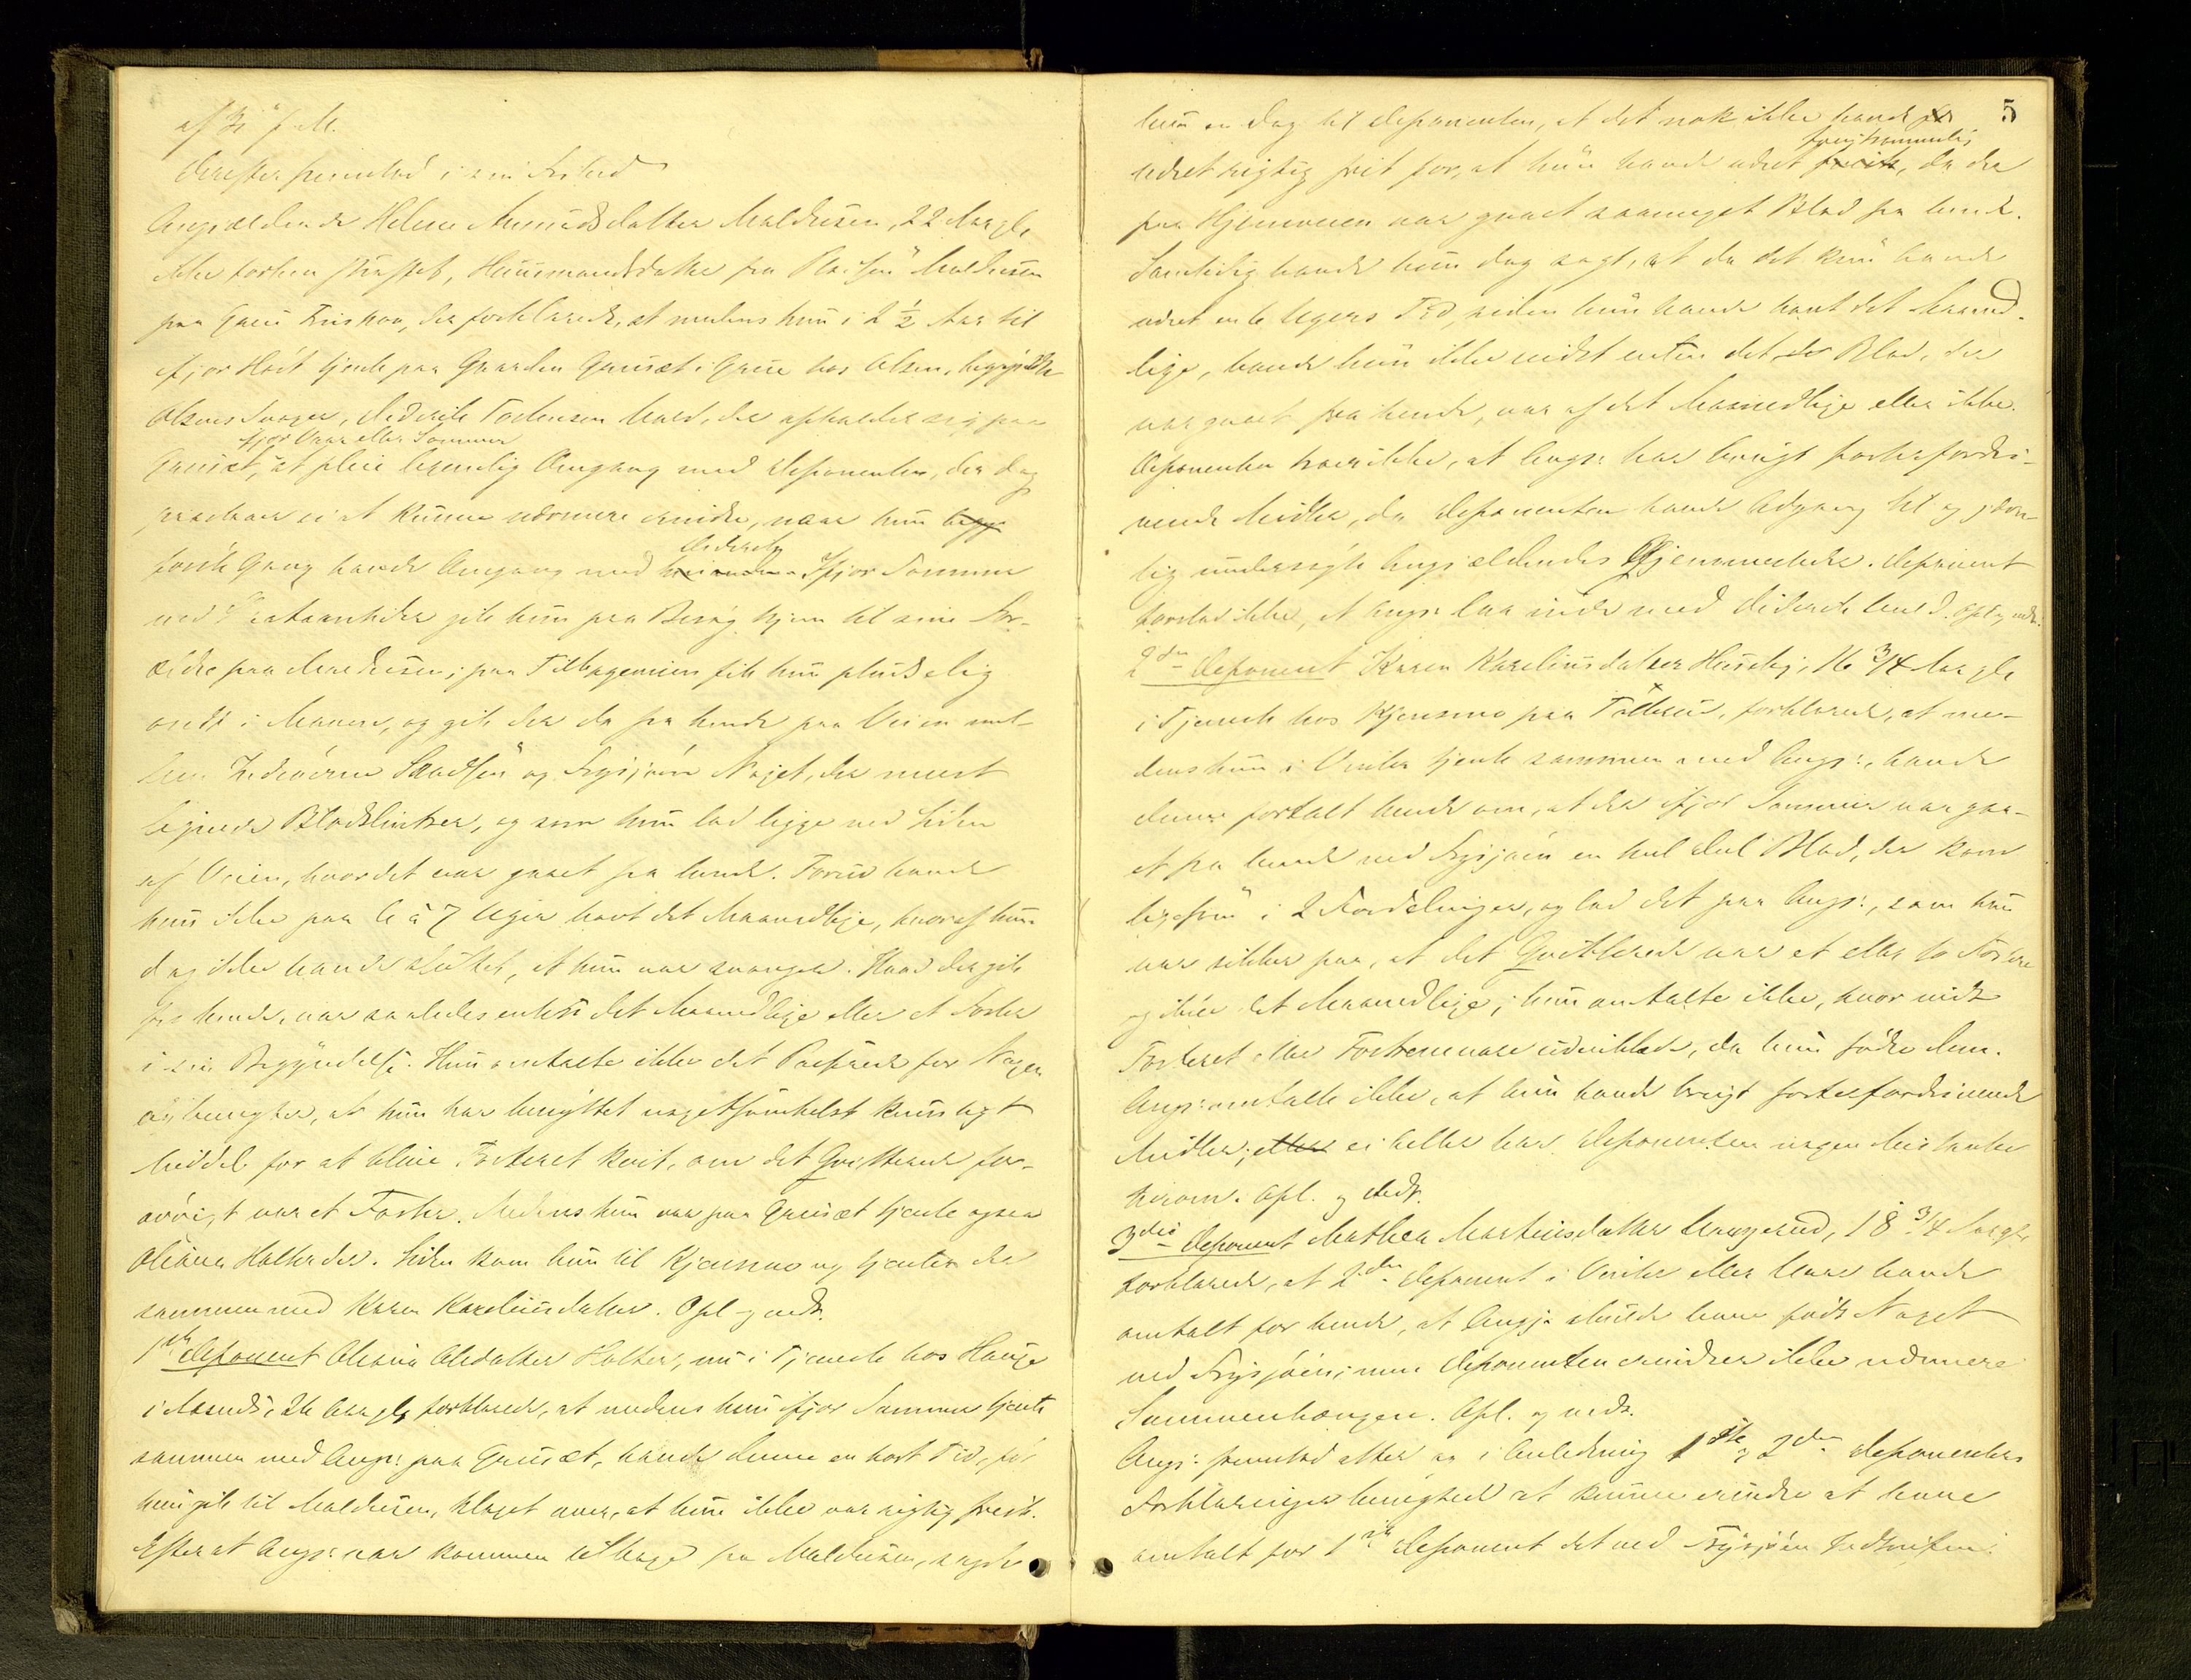 af 31 f. M.
Derefter fremstod i sin Frihed
Angjældende Helene Amundsdatter Maldusen, 22 Aar gl,
ikke forhen straffet, Huusmandsdatter fra Pladsen Maldusen
paa Grue Finskov, der forklarede, at medens hun i 2 ½ Aar til
ifjor Høst tjente paa Gaarden Gruset i Grue hos Olsen, begyndte
Olsens Svoger, Diderik Torkensen Lund, der opholder sig paa
ifjor Vaar eller Sommer
Gruset, at pleie legemlig Omgang med Deponenten, der dog
paastaar ei at kunne nærmere erindre, naar hun
første Gang havde Omgang med Diderik. Ifjor Sommer
ved gik hun paa Besøg hjem til sine For-
ældre paa Maldusen; paa Tilbageveien fik hun pludselig
ondt i Maven, og gik der da fra hende paa Veien mel-
lem og Frysjøen Noget, der meest
lignede Blodklintser, og som hun lod ligge ved Siden
af Veien, hvor det var gaaet fra hende. Forud havde
hun ikke paa 6 à 7 Uger havt det Maanedlige, hvoraf hun
dog ikke havde sluttet, at hun var svanger. Hvad der gik
fra hende, var saaledes enten det Maanedlige eller et Foster
i sin Begyndelse. Hun omtalte ikke det Passerede for Nogen
og benegter, at hun har benyttet nogetsomhelst kunstigt
Middel for at blive Fosteret kvit, om det Qvitterede for-
øvrigt var et Foster. Medens hun var paa Gruset tjente ogsaa
Oleana Halter der. Siden kom hun til Kjensmo og tjente der
sammen med Karen Kareliusdatter. Opl. og vedt.
1ste Deponent Oleana Olsdatter Halter, nu i Tjeneste hos Hauge
i 26 Aar gl, forklarede, at medens hun ifjor Sommer tjente
sammen med Angj: paa Gruset, havde denne en kort Tid, før
hun gik til Maldusen, klaget over, at hun ikke var rigtig frisk.
Efterat Angj: var kommen tilbage fra Maldusen, sagde
5
hun en Dag til Deponenten, at det nok ikke havde
frugtsommelig
været rigtig frit for, at hun havde været , da der
paa Hjemveien var gaaet saameget Blod fra hende.
Samtidig havde hun dog sagt, at da det kun havde
været en 6 Ugers Tid, siden hun havde havt det Maaned-
lige, havde hun ikke vidst enten det Blod, der
var gaaet fra hende, var af det Maanedlige eller ikke.
Deponenten troer ikke, at Angj: har brugt fosterfordri-
vende Midler, da Deponenten havde Adgang til og jevn-
lig undersøgte Angjældendes Gjemmesteder. Deponent
forstod ikke, at Angj: laa inde med Diderik Lund. Opl. og vedt.
2den Deponent Karen Karelinsdatter Huseby, 16 3/4 Aar gl,
i Tjeneste hos Kjensmo paa forklarede, at me-
dens hun i Vinter tjente sammen med Angj:, havde
denne fortalt hende om, at der ifjor Sommer var gaa-
et fra hende ved Frysjøen en heel Deel Blod, der kom
ligesom i 2 Fordelinger, og lod det paa Angj:, som hun
var sikker paa, at det Qvitterede var et eller to Fostre
og ikke det Maanedlige; hun omtalte ikke, hvor vidt
Fosteret eller Fostrene vare udviklede, da hun fødte dem.
Angj: omtalte ikke, at hun havde brugt fosterfordrivende
Midler; ei heller har Deponenten nogen Mistanke
herom. Opl. og Vedt.
3die Deponent Mathea Martinusdatter 18 3/4 Aar gl,
forklarede, at 2den Deponent i Vinter eller Vaar havde
omtalt for hende, at Angj: skulde have født Noget
ved Frysjøen; men Deponenten erindrer ikke nærmere
Sammenhængen. Opl. og vedt.
Angj: fremstod atter og i Anledning 1ste og 2den Deponenters
Forklaringer benegtede at kunne erindre at have
omtalt for 1ste Deponent det ved Frysjøen Indtrufne.